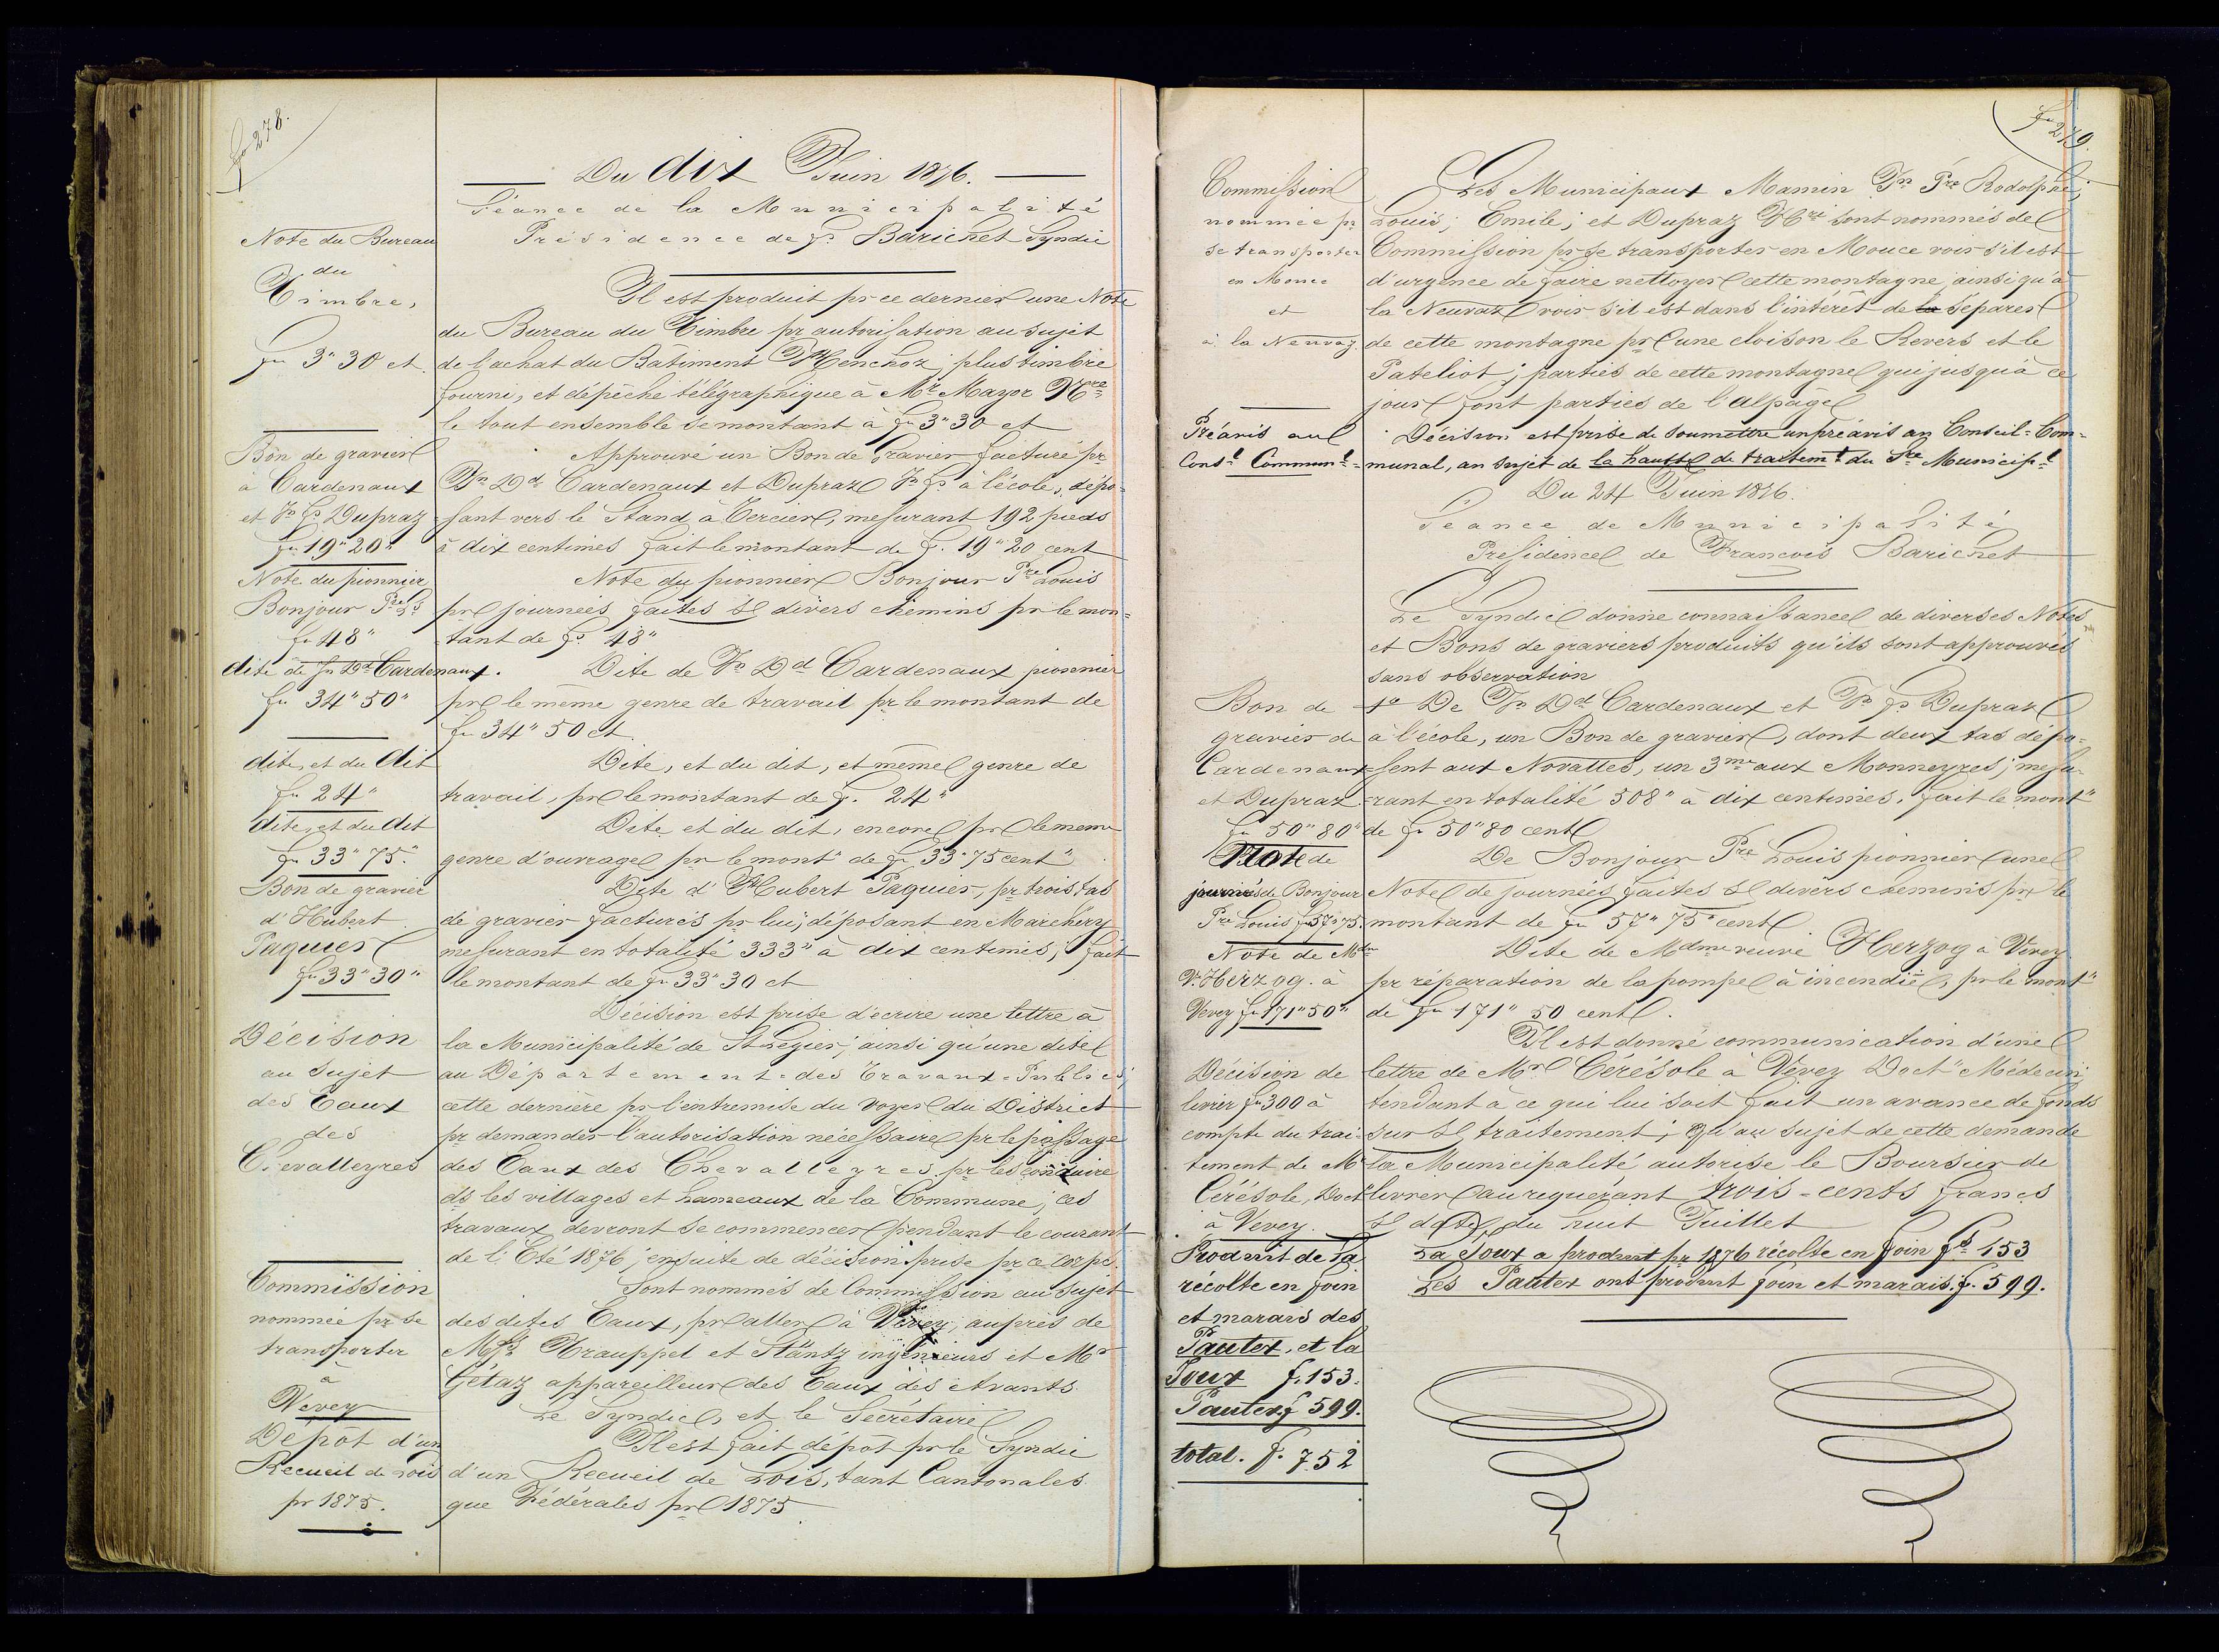 fo 278.
Du dix Juin 1876.
Séance de la Municipalité
Présidence de fs Barichet Syndic
Note du Bureau
du
Timbre,
fr 3" 30 ct.
Il est produit pr ce dernier une Note
du Bureau du Timbre pr autorisation au sujet
de l'achat du Bâtiment Henchoz; plus timbre
fourni, et dépêche télégraphique à Mr Mayor Nre
le tout ensemble se montant à fr 3" 30 ct
Bon de gravier
à Cardenaux
et Jn fs Dupraz
fr 19" 20"
Approuvé un Bon de Gravier facturé pr
Jn Dd Cardenaux et Dupraz Jn fs à l'école, dépo=
=sant vers le Stand à Tercier, mesurant 192 pieds
à dix centimes fait le montant de f. 19" 20 cent
Note du pionnier
Bonjour Pre Ls
fr 48"
Note du pionnier Bonjour Pre Louis
pr journées faites sr divers chemins pr le mon=
=tant de fr 48"
dite de Jn Dd Cardenaux.
fr 34" 50"
Dite de Jn Dd Cardenaux pionnier
pr le même genre de travail pr le montant de
fr 34" 50 ct.
dite, et du dit
fr 24"
Dite, et du dit, et même genre de
travail, pr le montant de f. 24"
dite, et du dit
fr 33" 75."
Dite, et du dit, encore pr le meme
genre d'ouvrage pr le mont" de fr 33" 75 cent"
Bon de gravier
d'Hubert
Paquier
fr 33" 30"
Dite d'Hubert Paquier, pr trois tas
de gravier facturés pr lui; déposant en Marchery
mesurant en totalité 333" à dix centimes, fait
le montant de fr 33" 30 ct
Décision
au sujet
des Eaux
des
Chevalleyres
Décision est prise d'ecrire une lettre à
la Municipalité de St Légier; ainsi qu'une dite
au Département des Travaux=Publics;
cette dernière pr l'entremise du Voyer du District
pr demander l'autorisation nécessaire pr le passage
des Eaux des Chevalleyres pr les conduire
ds les villages et hameaux de la Commune; ces
travaux devront se commencer pendant le courant
de l'Eté 1876; ensuite de décision prise pr ce Corps.
Commission
nommée pr se
transporter
à
Vevey
Sont nommés de Commission au sujet
des dites Eaux, pr aller à Vevey; auprès de
Mssrs Krauppel et Stäntz ingénieurs et Mr
Gétaz appareilleur des Eaux des Avants
Le Syndic, et le Secrétaire
Dépot d'un
Recueil de Lois
pr 1875.
Il est fait dépot pr le Syndic
d'un Recueil de Lois, tant Cantonales
que Fédérales pr 1875
fo 279.
Commission
nommée pr
se transporter
en Mouce
et
à la Neuvaz.
Les Municipaux Mamin Jn Pre Rodolphe;
Louis; Emile; et Dupraz Hri sont nommés de
Commission pr se transporter en Mouce voir s'il est
d'urgence de faire nettoyer cette montagne ainsi qu'à
la Neuvaz voir s'il est dans l'intérêt de la séparer
de cette montagne pr une cloison le Revers et le
Pateliot; parties de cette montagne qui jusqu'à ce
jour font parties de l'alpage
Préavis au
Consl Communl=
Décision est prise de soumettre un préavis au Conseil=Com=
=munal, au sujet de la hausse de traitemt du Sre Municipl
Du 24 Juin 1876.
Séance de Municipalité
Présidence de Francois Barichet
Le Syndic donne connaissance de diverses Notes
et Bons de graviers produits qu'ils sont approuvés
sans observation
Bon de
gravier de
Cardenaux
et Dupraz
fr 50" 80"
1o De Jn Dd Cardenaux et Jn fs Dupraz
à l'école, un Bon de gravier, dont deux tas dépo=
=sent aux Novalles, un 3me aux Monneyres; mesu=
=rant en totalité 508" à dix centimes, fait le mont"
de fr 50" 80 cent
Note de
journées de Bonjour
Pre Louis fr 57" 75.
De Bonjour Pre Louis pionnier une
Note de journées faites sr divers chemins pr le
montant de fr 57" 75" cent.
Note de Mdme
Ve Herzog. à
Vevey fr 171" 50"
Dite de Mdme veuve Herzog à Vevey
pr réparation de la pompe à incendie, pr le mont"
de fr 171" 50 cent.
Décision de
livrer fr 300 à
compte du trai=
tement de Mr
Cérésole, Doct"
à Vevey.
Il est donné communication d'une
lettre de Mr Cérésole à Vevey Doct" Médecin
tendant à ce qui lui soit fait un avance de fonds
sur sr traitement; Qu'au sujet de cette demande
la Municipalité autorise le Boursier de
livrer au requérant trois=cents francs
sr date, du huit Juillet
Produit de la
récolte en foin
et marais des
Pautex, et la
Joux f. 153.
Pautex f 599.
total. f. 752
La Joux a produit pr 1876 récolte en foin fs 153
Les Pautex ont produit foin et marais. f. 599.